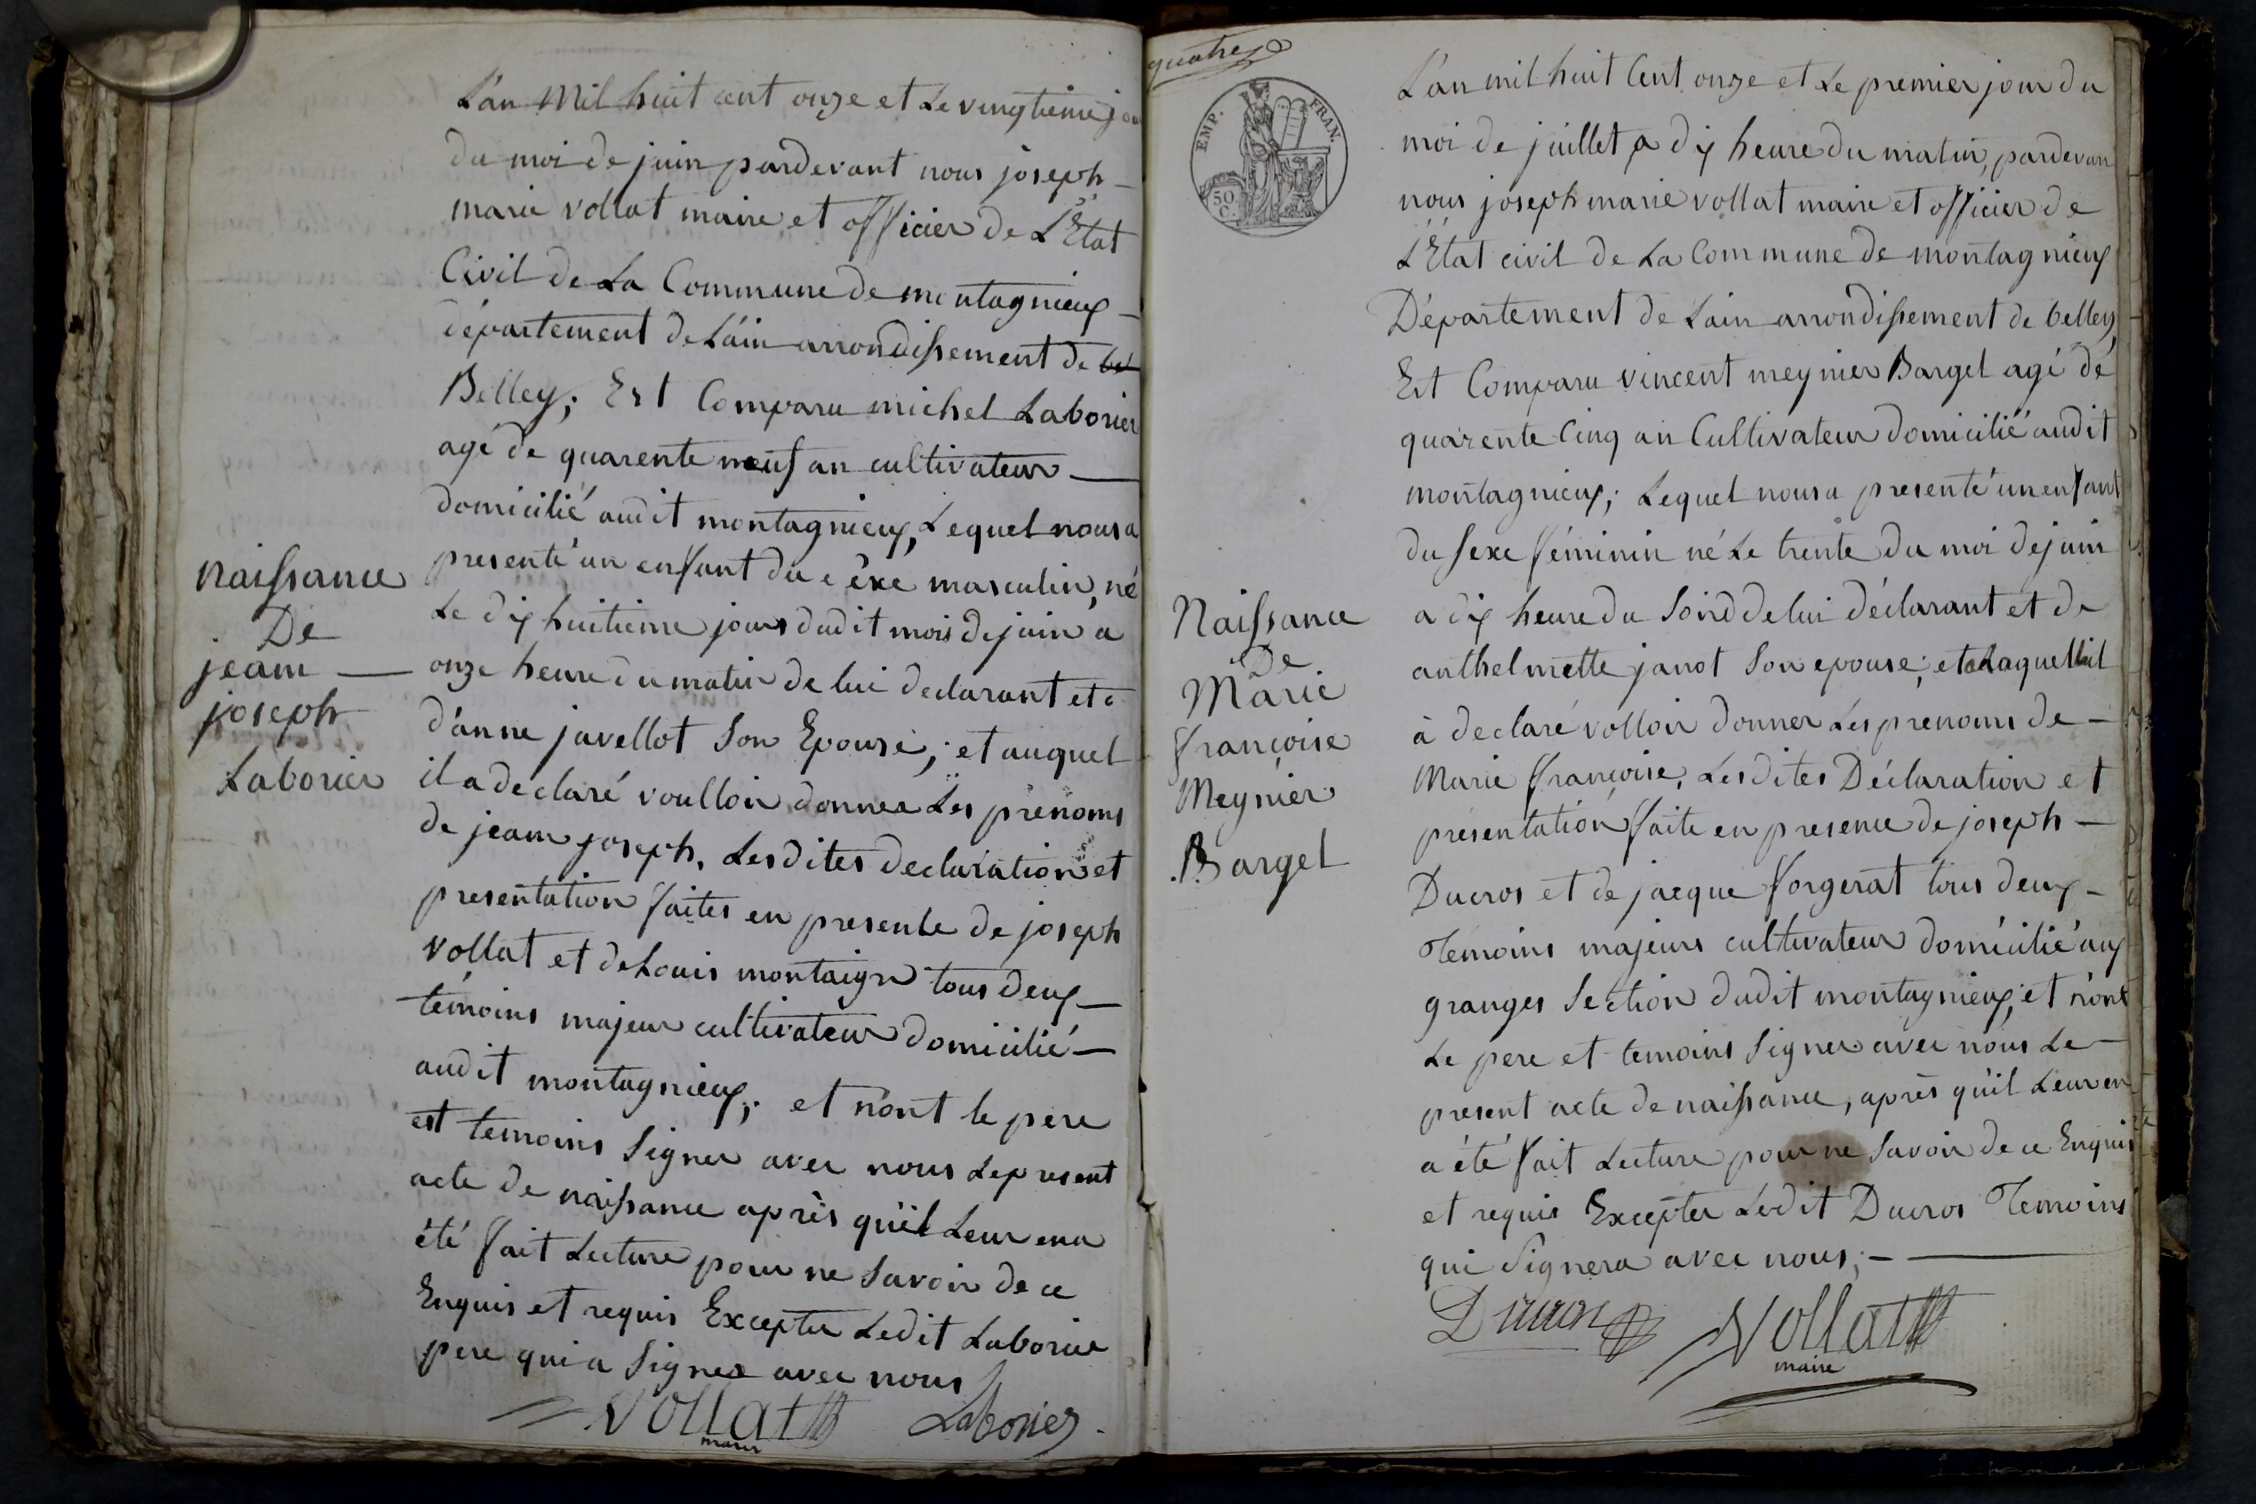 L'an Mil huit cent onze et Le vingtieme jou
du moi de juin pardevant nous joseph
marie vollat maire et officier de L'Etat
Civil de La Commune de montagnieux
département de L'ain arrondissement de bel
Belley; Est Comparu michel Laborier
agé de quarente neuf an cultivateur
domicilié audit montagnieux, Lequel nous a
presenté un enfant du sexe masculin, né
Le dix huitieme jours dudit mois de juin a
onze heure du matin de lui declarant et
d'anne javellot Son Epouse; et auquel
il a declaré voulloir donner Les prenoms
de jeam joseph, Les dites declaration et
presentation faites en presente de joseph
vollat et de Louis montaign tous deux
témoins majeur cultivateur domicilié
audit montagnieux; et n'ont le pere
est temoins Signer avec nous Le present
acte de naissance après qu'il Leur en a
été fait Lecture pour ne Savoir de ce
Enquis et requis Excepter Ledit Laborier
pere qui a Signer avec nous
Vollat Laborier
maire
Naissance
De
jeam
joseph
Laborier
quatre
EMP. FRAN.
50 C.
L'an mil huit Cent onze et Le premier jour du
moi de juillet a dix heure du matin, pardevan
nous joseph marie vollat maire et officier de
L'Etat civil de La Commune de montagnieux
Département de L'ain arrondissement de belley,
Est Comparu vincent meynier Barget agé de
quarente Cinq an Cultivateur domicilié audit
montagnieux; Lequel nous a presenté un enfant
du Sexe féminin né Le trente du moi de juin
a dix heure du Soird de lui déclarant et de
anthelmette janot Son epouse; et a Laquell il
à declaré volloir donner Les prenoms de
Marie françoise, Les dites Déclaration et
présentation faite en presence de joseph
Ducros et de jacque forgerat tous deux
Témoins majeurs cultivateur domicilié aux
granges Section dudit montagnieux; et n'ont
Le pere et temoins Signer avec nous Le
present acte de naissance, après qu'il Leur en
a été fait Lecture pour ne Savoir de ce Enquis
et requis Excepter Ledit Ducros Temoins
qui Signera avec nous;
Ducros Vollat
maire
Naissance
De
Marie
françoise
Meynier
Barget